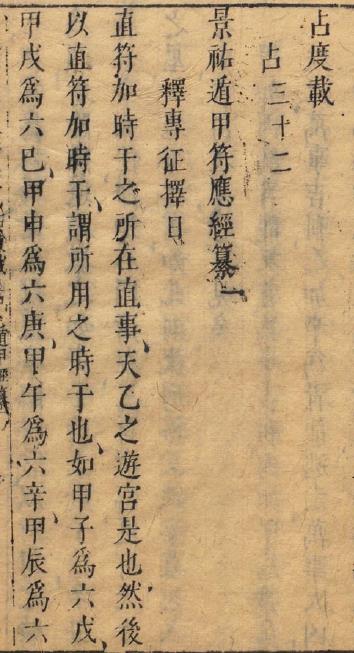 占度載
占三十二
景祐遁甲符應經纂一
釋專征擇日
直符加時干之所在直事天乙之遊宮是也然後
以直符加時干謂所用之時干也如甲子為六戊
甲戌為六己甲申為六庚甲午為六辛甲辰為六